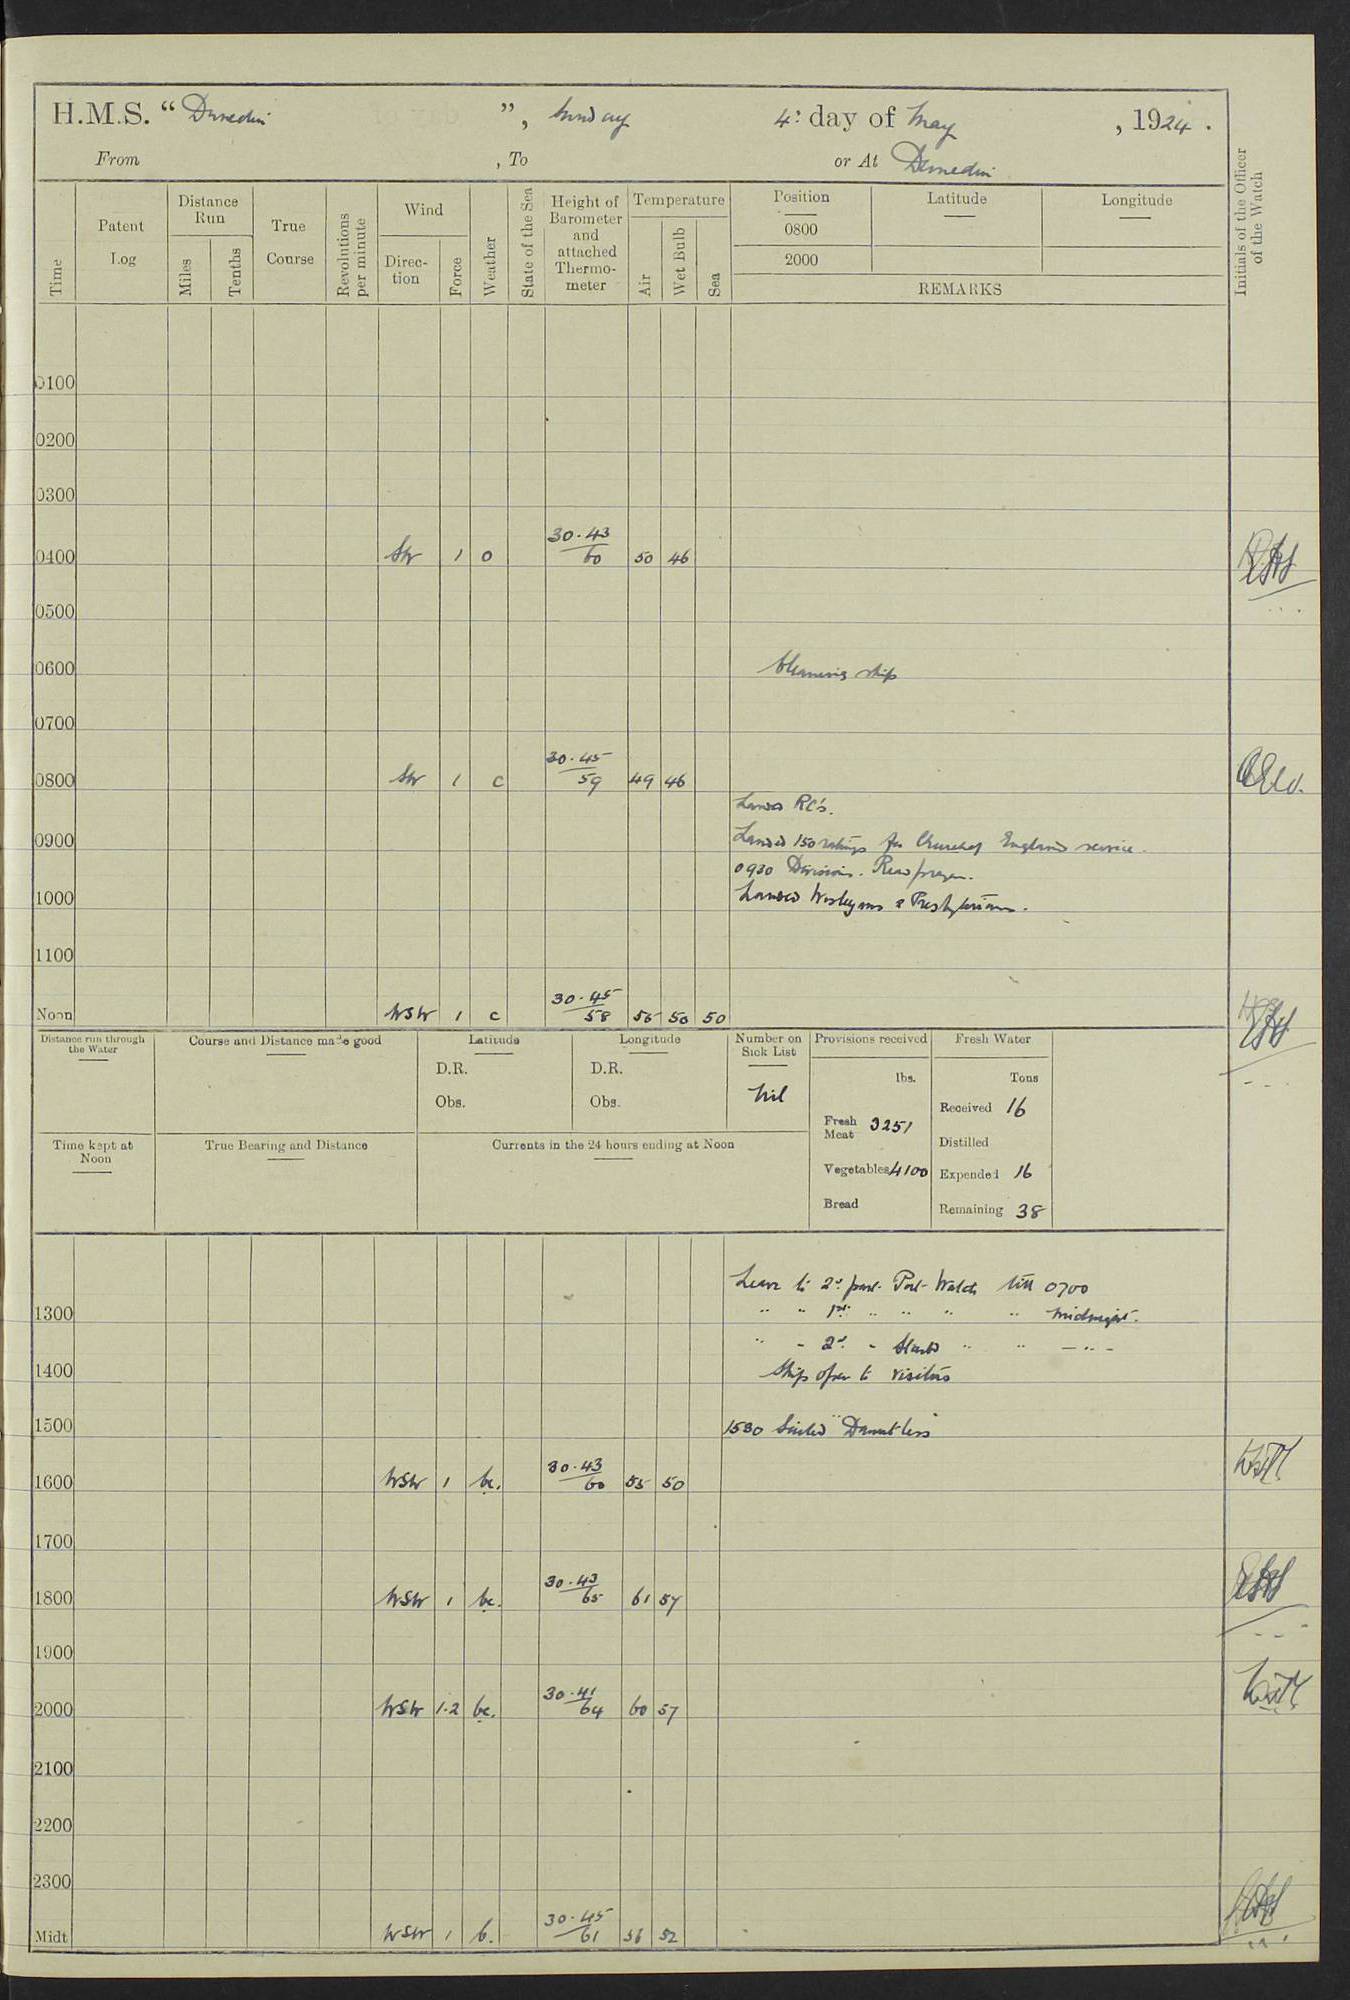 H.M.S. “ Dunedin ”, Sunday 4th day of May , 1924 .
From , To or At Dunedin
Time
Patent Log
Distance Run
Miles
Tenths
True Course
Revolutions per minute
Wind
Direc-tion
Force
Weather
State of the Sea
Height of Barometer and attached Thermo-meter
Temperature
Air
Wet Bulb
Sea
Position Latitude Longitude
0800
2000
REMARKS
Initials of the Officer of the Watch
0100
0200
0300
0400 SW 1 o 30.43 60 50 46
0500
0600 Cleaning ship
0700
0800 SW 1 c 30.45 59 49 46
Landed RC's.
0900 Landed 150 ratings for Church of England service.
0930 Divisions. Read prayers.
1000 Landed Wesleyans & Presbyterians.
1100
Noon WSW 1 c 30.45 58 56 50 50
Distance run through the Water
Course and Distance made good
Latitude
D.R.
Obs.
Longitude
D.R.
Obs.
Number on Sick List
Nil
Provisions received
lbs.
Fresh Meat 3251
Vegetables 4100
Bread
Fresh Water
Tons
Received 16
Distilled
Expended 16
Remaining 38
Time kept at Noon
True Bearing and Distance
Currents in the 24 hours ending at Noon
Leave to 2d part Port Watch till 0700
1300 " " 1st " " " " Midnight.
" " 2d " Starbd " " — " —
1400 Ship open to visitors
1500 1530 Sailed "Dauntless"
1600 WSW 1 bc. 30.43 60 55 50
1700
1800 WSW 1 bc. 30.43 65 61 57
1900
2000 WSW 1.2 bc. 30.41 64 60 57
2100
2200
2300
Midt WSW 1 b. 30.45 61 56 52